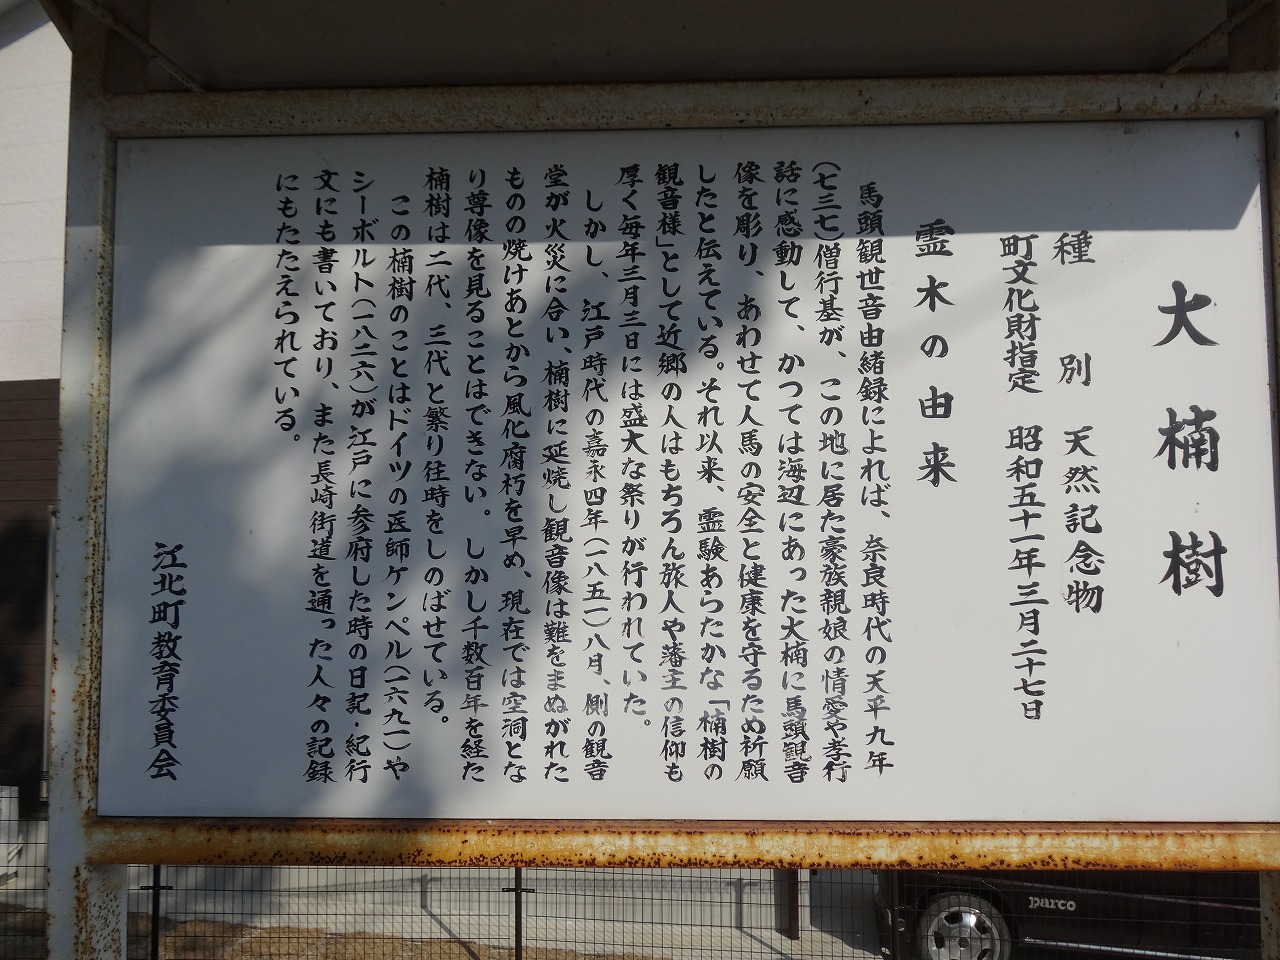 大楠樹
種別 天然記念物
町文化財指定 昭和五十一年三月二十七日
霊木の由来
馬頭観世音由緒録によれば、奈良時代の天平九年
(七三七)僧行基が、この地に居た豪族親娘の情愛や孝行
話に感動して、かつては海辺にあった大楠に馬頭観音
像を彫り、あわせて人馬の安全と健康を守るため祈願
したと伝えている。それ以来、霊験あらたかな「楠樹の
観音様」として近郷の人はもちろん旅人や藩主の信仰も
厚く毎年三月三日には盛大な祭りが行われていた。
しかし、江戸時代の嘉永四年(一八五一)八月、側の観音
堂が火災に合い、楠樹に延焼し観音像は難をまぬがれた
ものの焼けあとから風化腐朽を早め、現在では空洞とな
り尊像を見ることはできない。しかし千数百年を経た
楠樹は二代、三代と繁り往時をしのばせている。
この楠樹のことはドイツの医師ケンペル(一六九一)や
シーボルト(一八二六)が江戸に参府した時の日記・紀行
文にも書いており、また長崎街道を通った人々の記録
にもたたえられている。
江北町教育委員会
parco